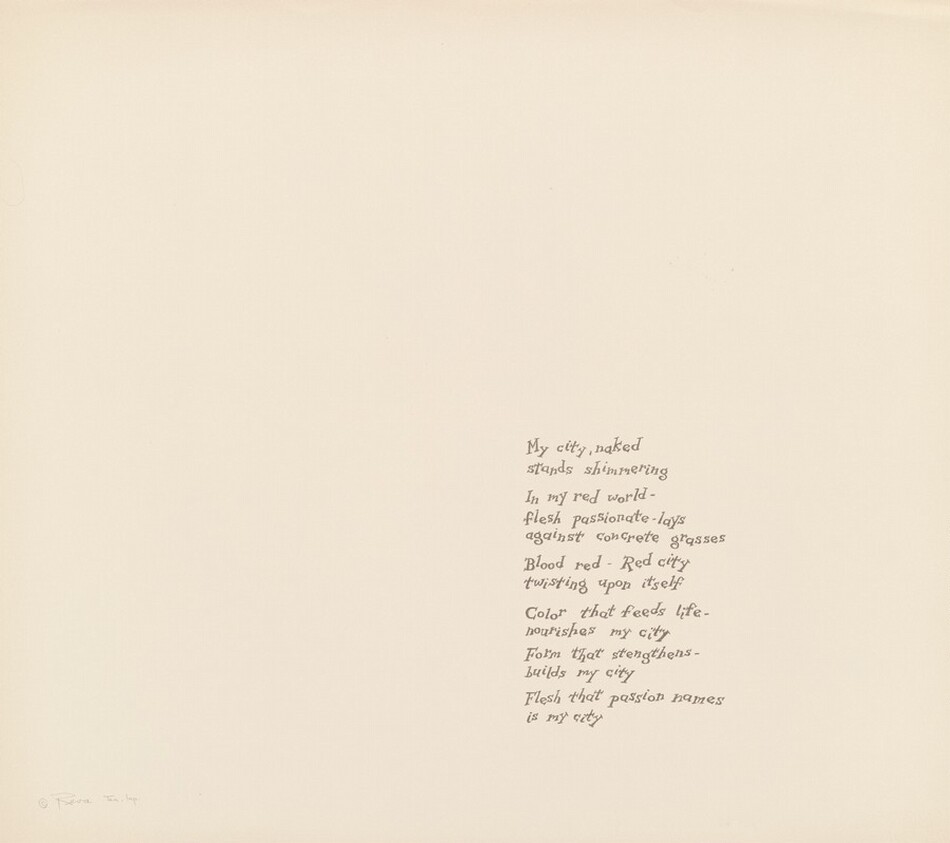 My city, naked
stands shimmering
In my red world-
flesh passionate-lays
against concrete grasses
Blood red - Red city
twisting upon itself
Color that feeds life-
nourishes my city
Form that stengthens-
builds my city
Flesh that passion names
is my city
©